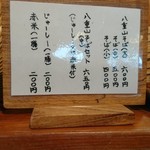 八重山そば(大) 六〇〇円
そば(中) 五〇〇円
そば(小) 四〇〇円
八重山そばセット 六五〇円
(じゅーしー又は赤米付)
じゅーしー(一膳) 二〇〇円
赤米(一膳) 二〇〇円